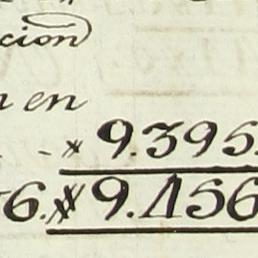 cion
n en
- × 9.395
6.$ 9.456